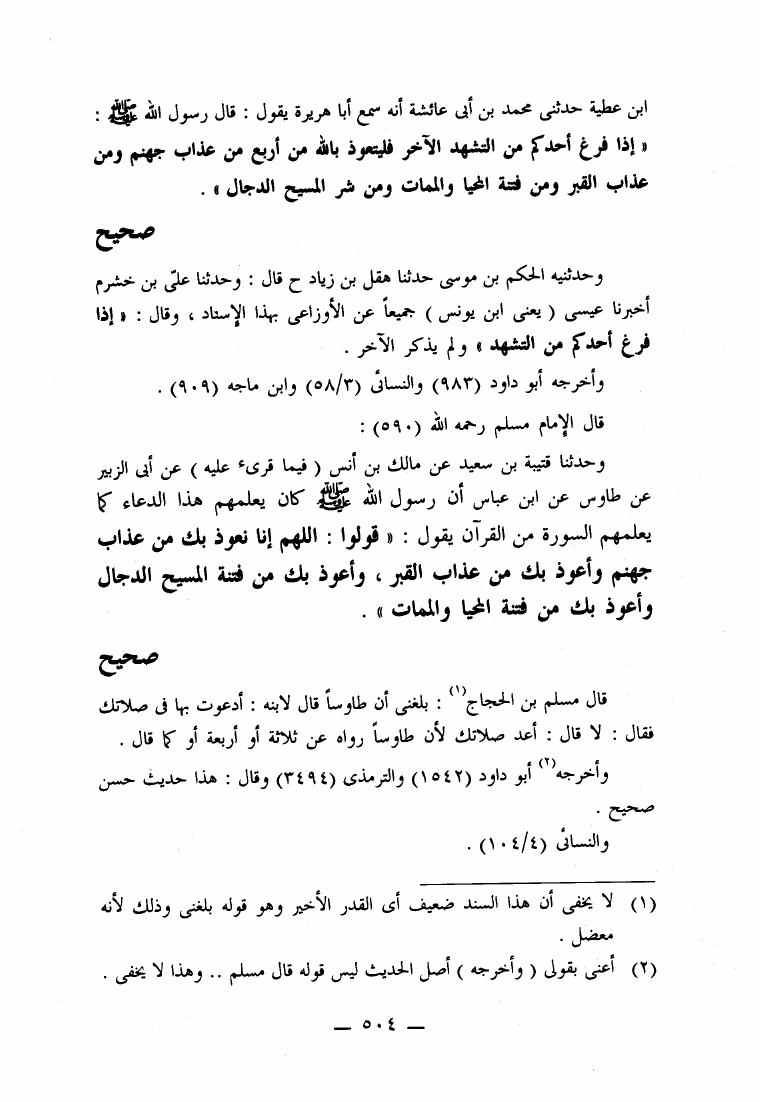 ابن عطية حدثنى محمد بن أبى عائشة أنه سمع أبا هريرة يقول : قال رسول الله ﷺ :
« إذا فرغ أحدكم من التشهد الآخر فليتعوذ بالله من أربع من عذاب جهنم ومن
عذاب القبر ومن فتنة المحيا والممات ومن شر المسيح الدجال » .
صحيح
وحدثنيه الحكم بن موسى حدثنا هقل بن زياد ح قال : وحدثنا علىّ بن خشرم
أخبرنا عيسى ( يعنى ابن يونس ) جميعاً عن الأوزاعى بهذا الإسناد ، وقال : « إذا
فرغ أحدكم من التشهد » ولم يذكر الآخر .
وأخرجه أبو داود (٩٨٣) والنسائى (٥٨/٣) وابن ماجه (٩٠٩) .
قال الإمام مسلم رحمه الله (٥٩٠) :
وحدثنا قتيبة بن سعيد عن مالك بن أنس ( فيما قرىء عليه ) عن أبى الزبير
عن طاوس عن ابن عباس أن رسول الله ﷺ كان يعلمهم هذا الدعاء كما
يعلمهم السورة من القرآن يقول : « قولوا : اللهم إنا نعوذ بك من عذاب
جهنم وأعوذ بك من عذاب القبر ، وأعوذ بك من فتنة المسيح الدجال
وأعوذ بك من فتنة المحيا والممات » .
صحيح
قال مسلم بن الحجاج(١) : بلغنى أن طاوساً قال لابنه : أدعوت بها فى صلاتك
فقال : لا قال : أعد صلاتك لأن طاوساً رواه عن ثلاثة أو أربعة أو كما قال .
وأخرجه(٢) أبو داود (١٥٤٢) والترمذى (٣٤٩٤) وقال : هذا حديث حسن
صحيح .
والنسائى (١٠٤/٤) .
(١) لا يخفى أن هذا السند ضعيف أى القدر الأخير وهو قوله بلغنى وذلك لأنه
معضل .
(٢) أعنى بقولى ( وأخرجه ) أصل الحديث ليس قوله قال مسلم .. وهذا لا يخفى .
— ٥٠٤ —